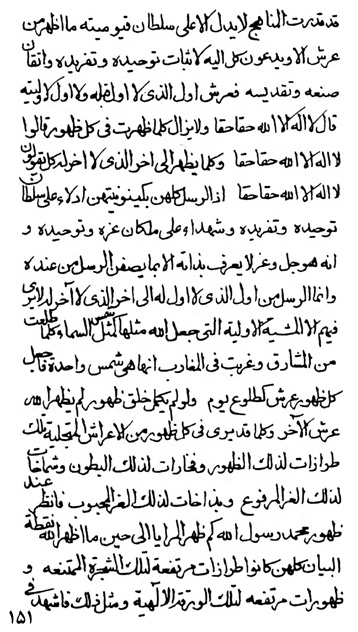 قد قدرت المناهج لا يدل الا على سلطان قيوميته ما اظهر من
عرش الا ويدعون كل اليه لاثبات توحيده وتفريده واتقان
صنعه وتقديسه فعرش اول الذى لا اول قبله ولا اول لاوليته
قال لا اله الا الله حقا حقا ولا يزال كلما ظهرت فى كل ظهور قالوا
لا اله الا الله حقا حقا وكلما يظهر الى اخر الذى لا اخر له كل يقولون
لا اله الا الله حقا حقا اذ الرسل كلهن بكينونيتهن ادلاء على سلطان
توحيده وتفريده وشهداء على ملكان عزه وتوحيده و
انه هو جل وعز لا يعرف بذاته الا بما يصفن الرسل من عنده
وانما الرسل من اول الذى لا اول له الى اخر الذى لا آخر له لا يرى
فيهم الا المشية الاولية التى جعل الله مثلها كمثل شمس السماء كلما طلعت
من المشارق وغربت فى المغارب انها هى شمس واحدة فاجعل
كل ظهور عرش كطلوع يوم ولو لم يكمل خلق ظهور لم يظهر الله
عرش الآخر وكلما قد يرى فى كل ظهور من الاعراش المتجلية تلك
طرازات لذلك الظهور وفخارات لذلك البطون وشماخات
لذلك الغر المرفوع وبذاخات لذلك العز المحبوب فانظر عند
ظهور محمد رسول الله كم ظهر المرايا الى حين ما اظهر الله نقطة
البيان كلهن كانوا طرازات مرتفعه لتلك الشجرة الممتنعه و
ظهورات مرتفعه لتلك الورقة الالهية ومثل ذلك فاشهد فى
١٥١